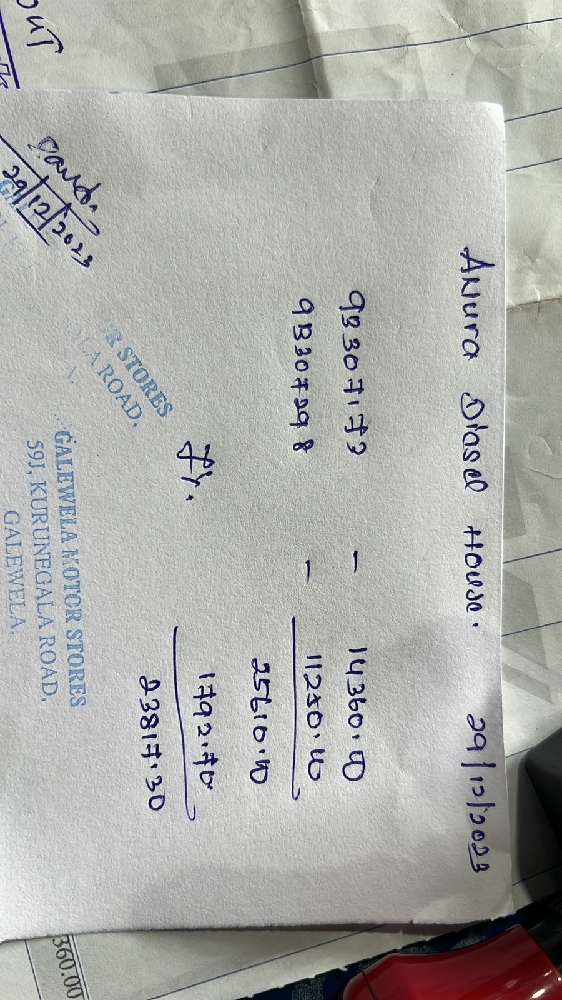 Anura Diesel House. 29/12/2023
9B307173 - 14360.00
9B307298 - 11250.00
25610.00
7%. 1792.70
23817.30
29/12/2023
R STORES
LA ROAD,
GALEWELA MOTOR STORES
591, KURUNEGALA ROAD,
GALEWELA.
OUT
360.00